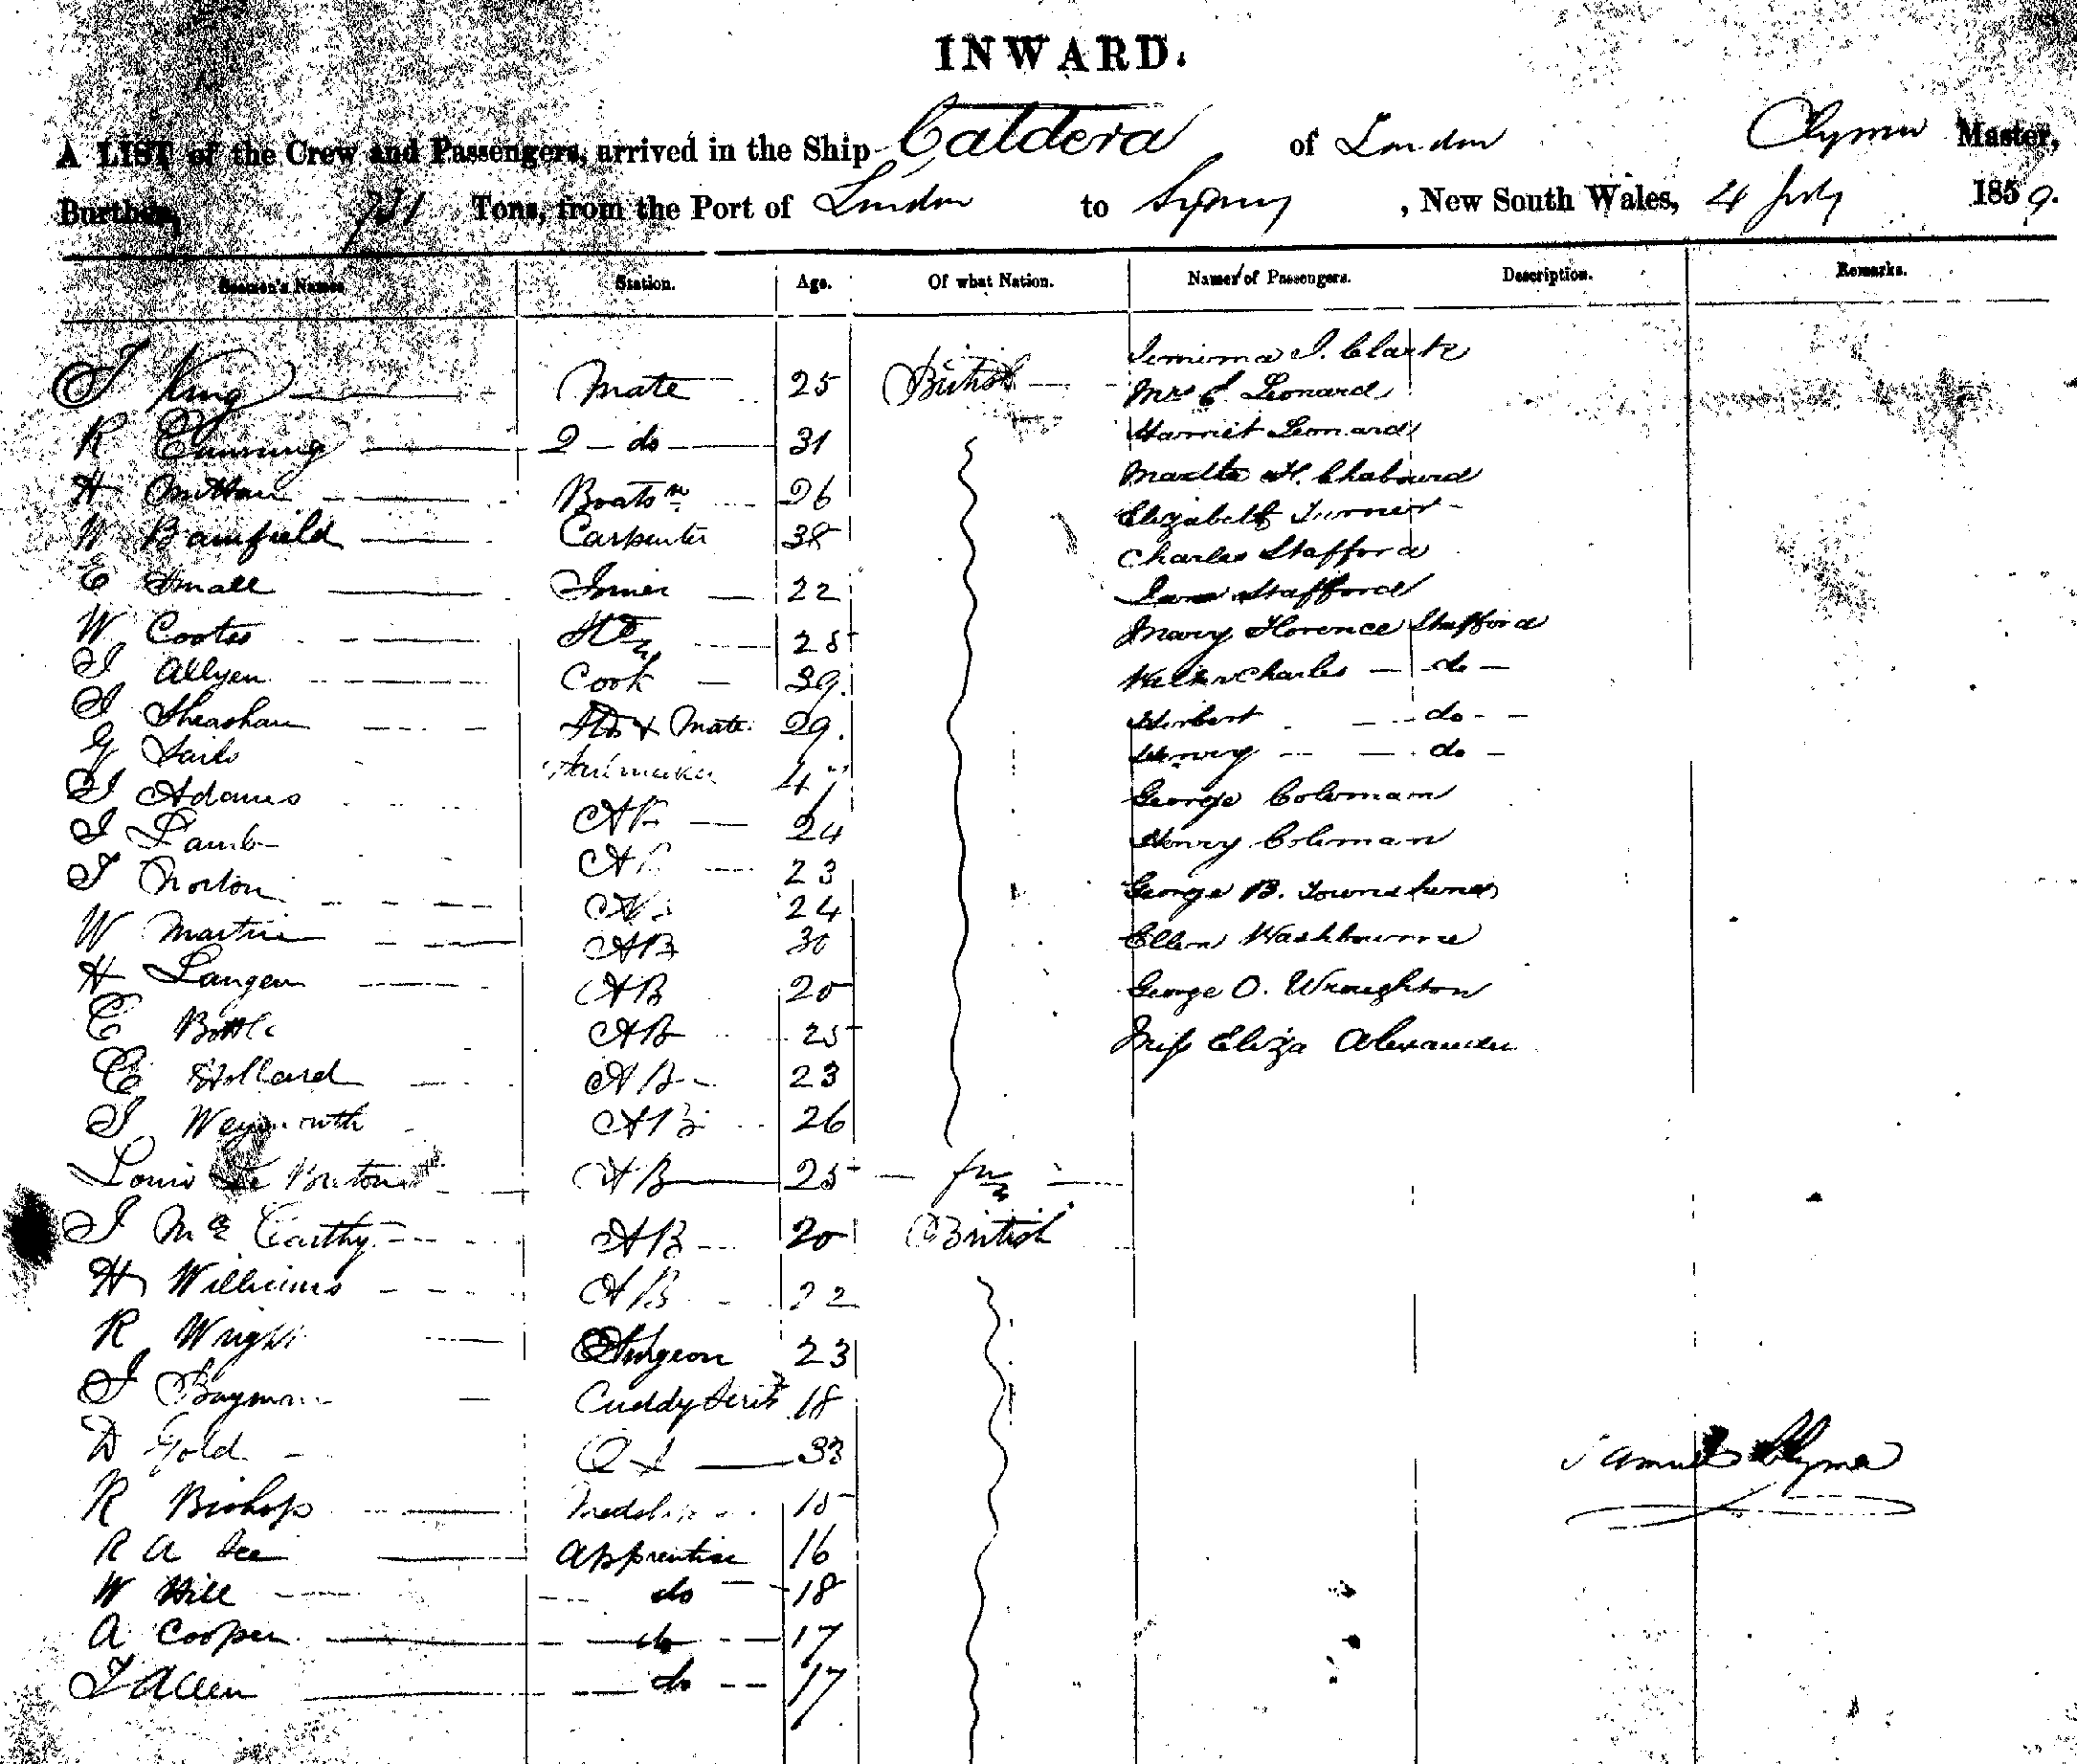 INWARD.
A LIST of the Crew and Passengers, arrived in the Ship Caldera of London Clymer Master,
Burthen, Tons, from the Port of London to Sydney, New South Wales, 4 July 1859.
Seamen's Names Station. Age. Of what Nation. Names of Passengers. Description. Remarks.
J King Mate 25 British
R Cunning 2 do 31
H Boatsn 26
W Bamfield Carpenter 38
E Small Joiner 22
W Cootes 25
J Allyen Cook 39.
J & Mate. 29.
G Sails Sailmaker
J Adams AB 24
J Lamb AB 23
J Norton AB 24
W Martin AB 30
H Langen AB 20
C Bottle AB 25
E Hollard AB 23
J Weymouth AB 26
Louis Le Breton AB 25
J McCarthy AB 20 British
H Williams AB 22
R Wright Surgeon 23
J Bayman Cuddy Servt 18
D Gold 33
R Bishop Midship 15
R A Apprentice 16
W Hill do 18
A Cooper do 17
J Allen do 17
Jemima J. Clarke
Mrs C Leonard
Harriet Leonard
Martha H. Chabourd
Elizabeth Turner
Charles Stafford
Jane Stafford
Mary Florence Stafford
Charles do
Herbert do
Henry do
George Coleman
Henry Coleman
George B.
Ellen Washbourne
George O. Wroughton
Miss Eliza Alexander
Samuel Clymer